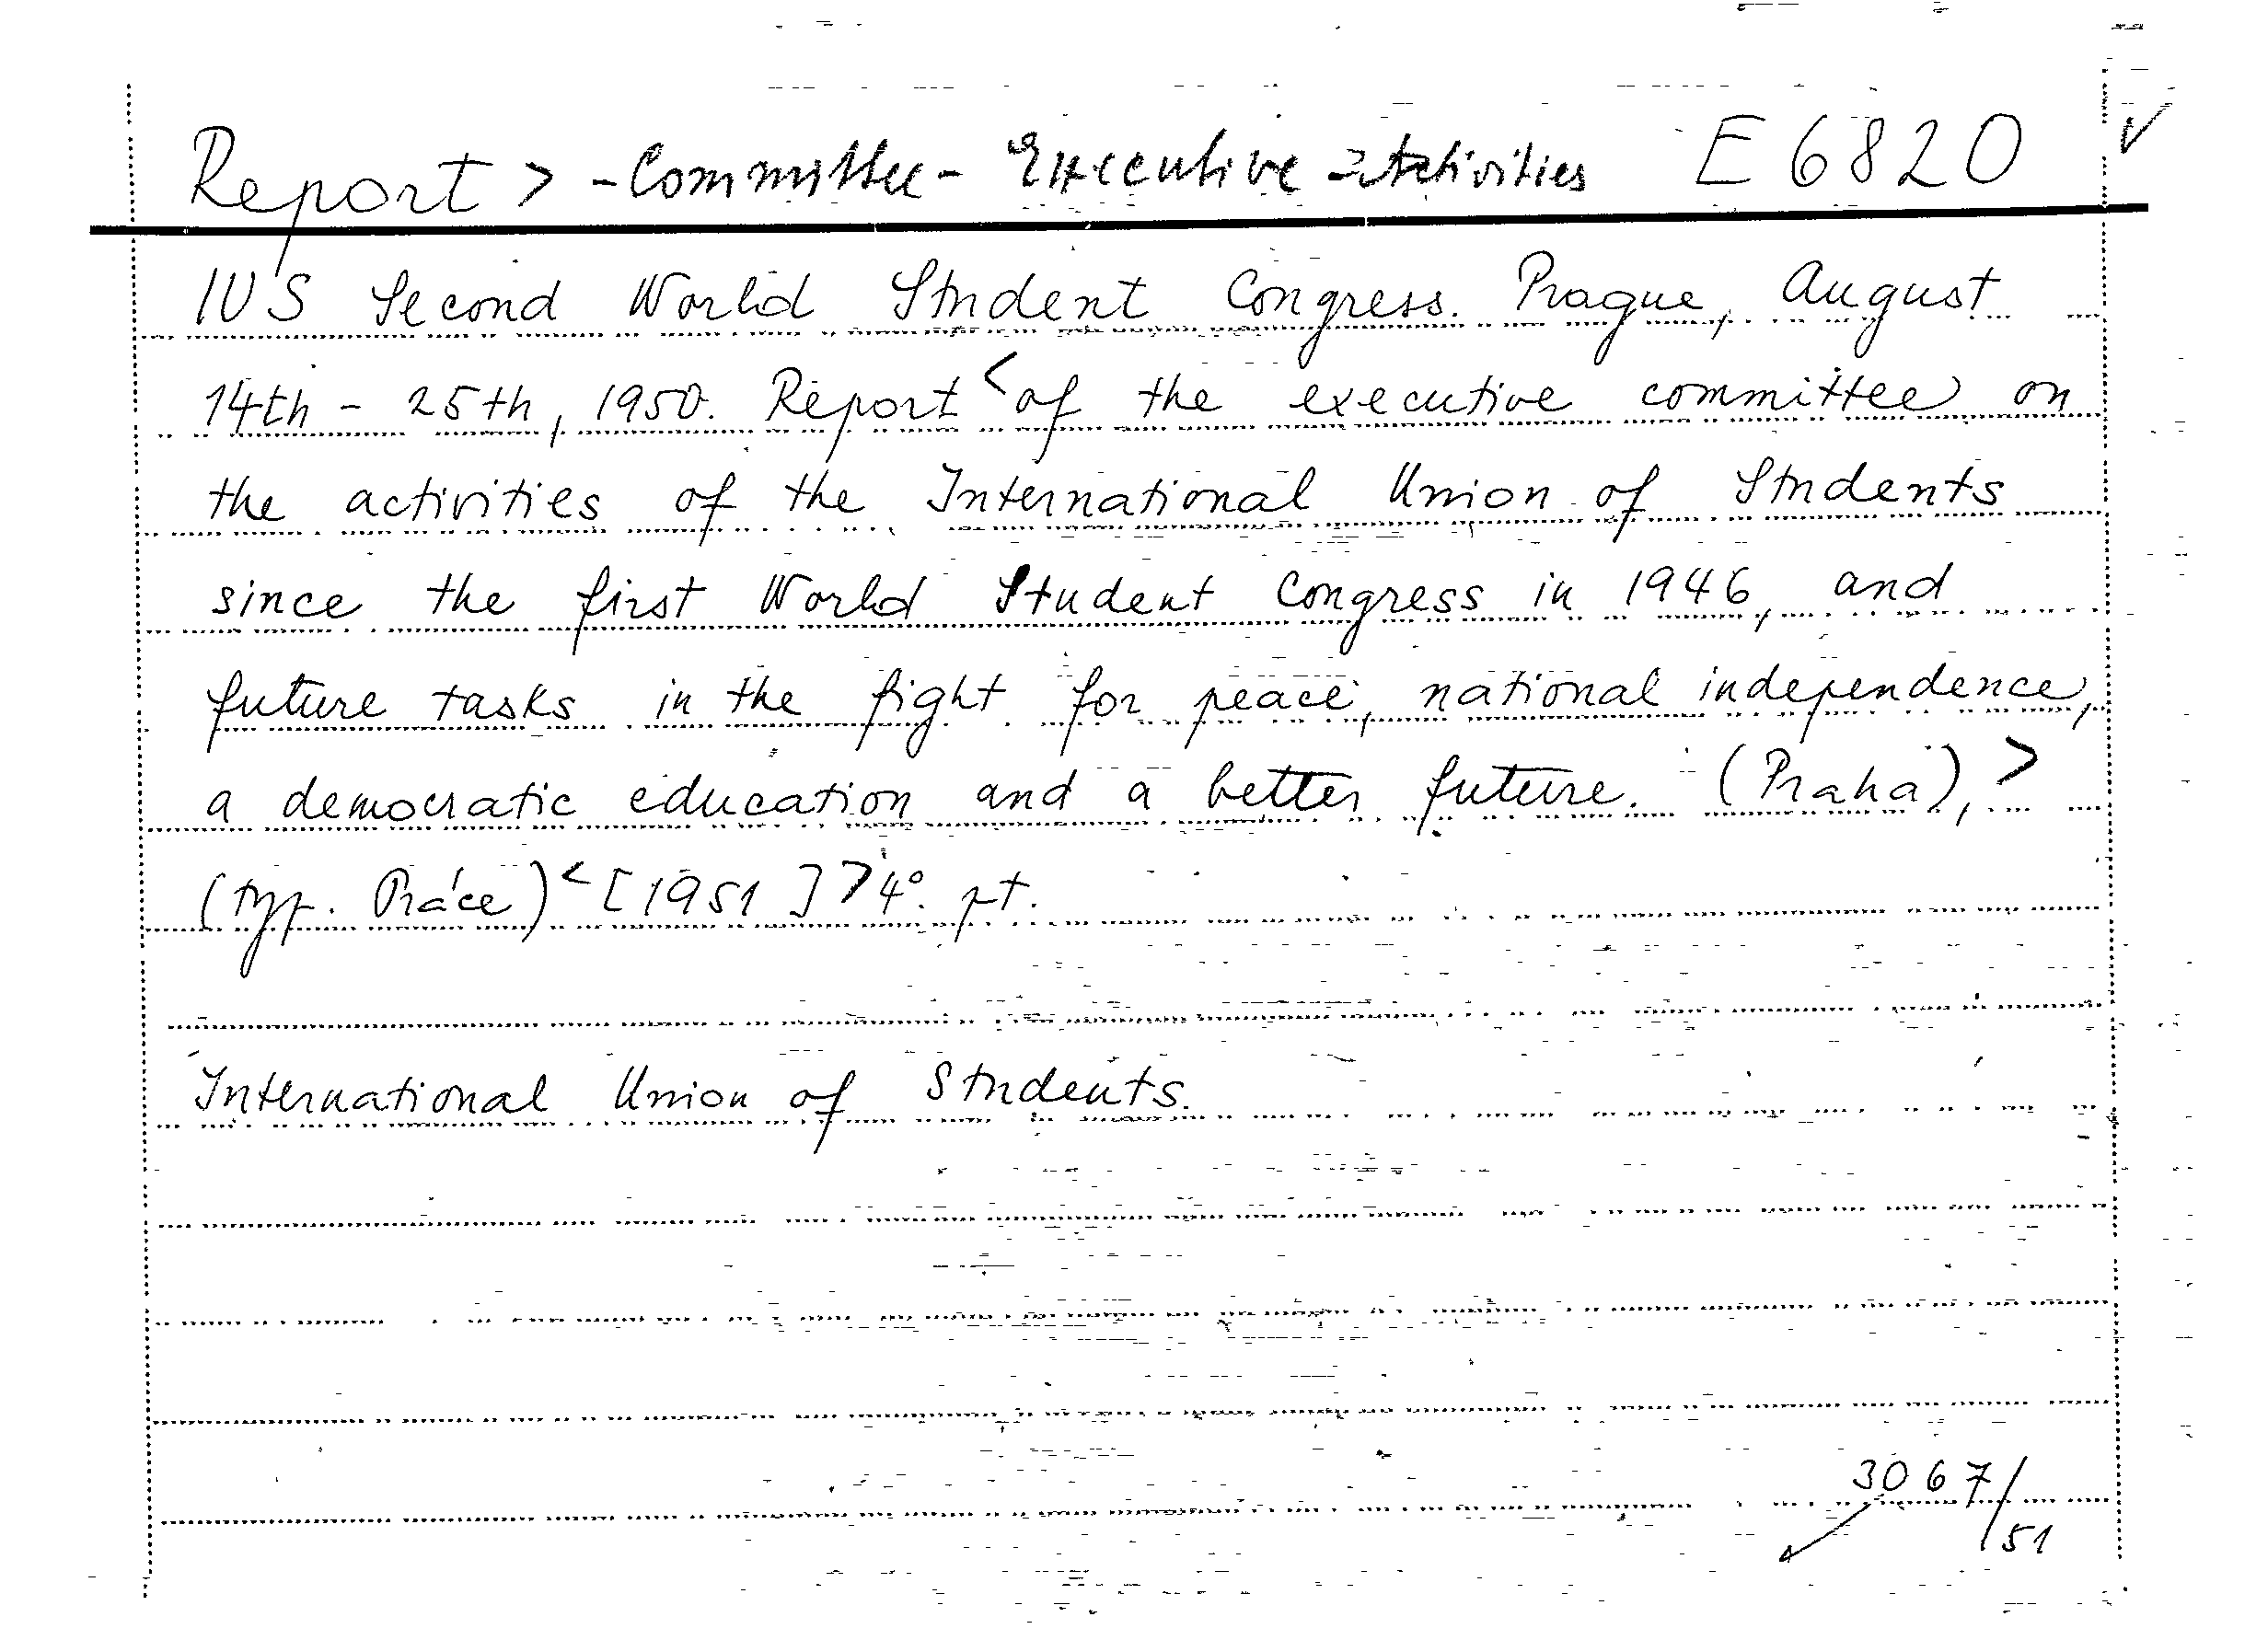 Report > - Committee - Executive - Activities E 6820 ✓
IUS Second World Student Congress. Prague, August
14th - 25th, 1950. Report < of the executive committee on
the activities of the International Union of Students
since the first World Student Congress in 1946, and
future tasks in the fight for peace, national independence,
a democratic education and a better future. (Praha), >
(typ. Práce) < [1951] > 4°. pt.
International Union of Students.
3067/51